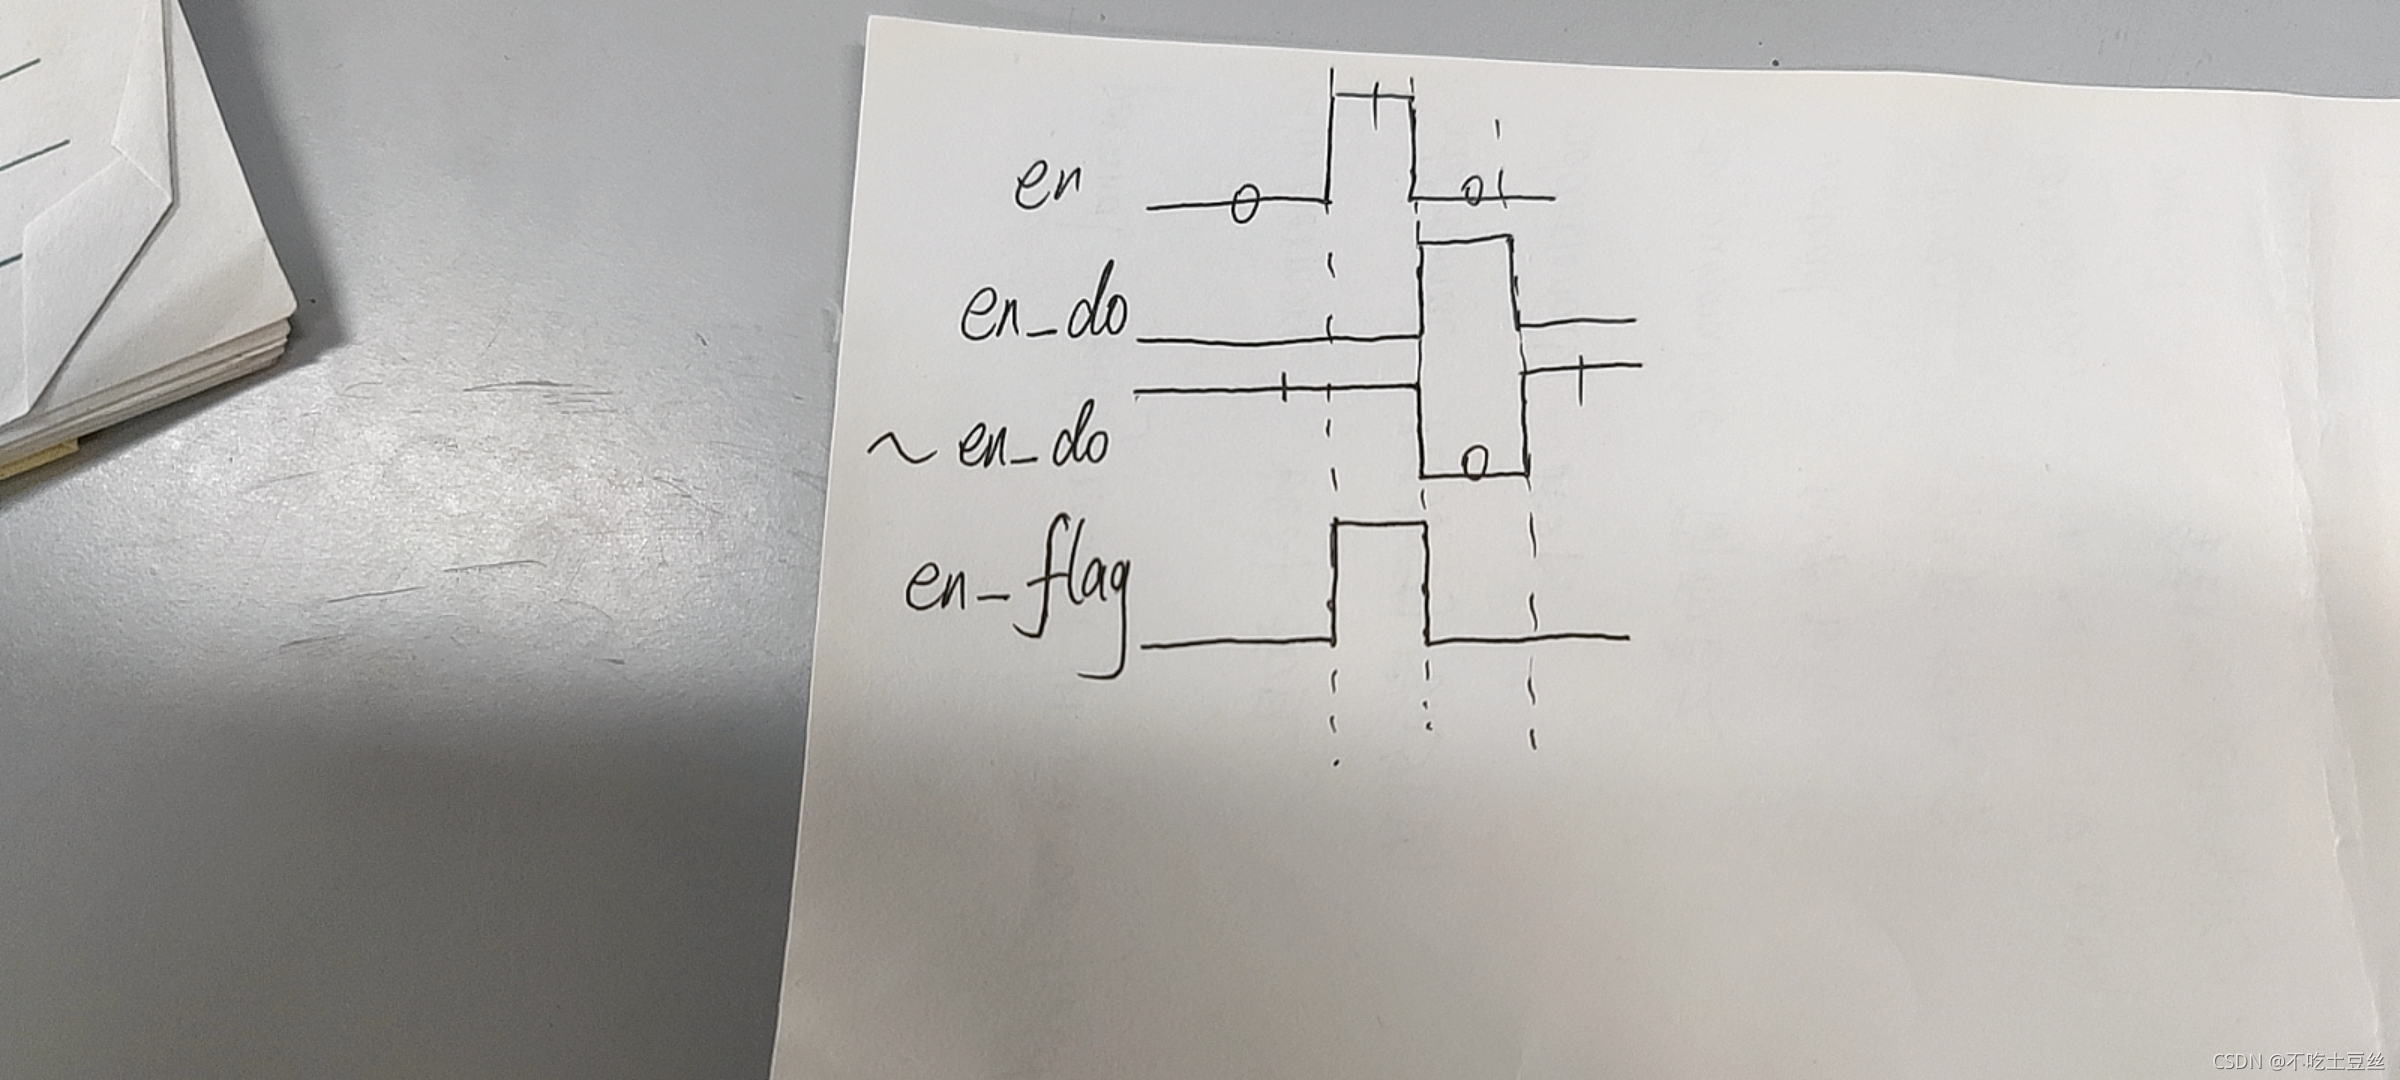 en
0
1
0
en_do
1
1
~ en_do
0
en_flag
CSDN @不吃土豆丝